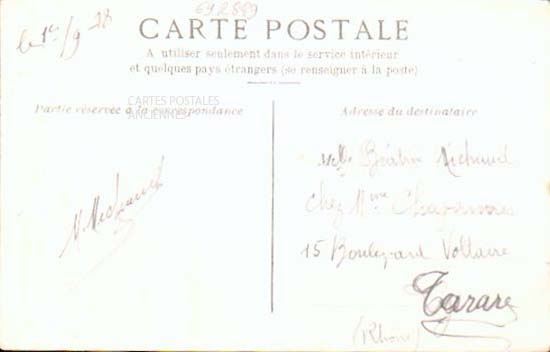 692889
le 1er/9 28
CARTE POSTALE
A utiliser seulement dans le service intérieur
et quelques pays étrangers (se renseigner à la poste)
Partie réservée à la correspondance
CARTES POSTALES
ANCIENNES
Adresse du destinataire
Melle Michaud
chez Mme
15 Boulevard Voltaire
Tarare
(Rhône)
M. Michaud